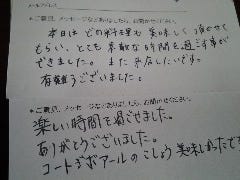 メールアドレス
※ご意見、メッセージなどありましたら、お聞かせください。
本日はどの料理も美味しく頂かせて
もらい、とても素敵な時間を過ごす事が
できました。また来店したいです。
有難うございました。
※ご意見、メッセージなどありましたら、お聞かせください。
楽しい時間を過ごせました。
ありがとうございました。
コートジボアールのこしょう美味しかったです